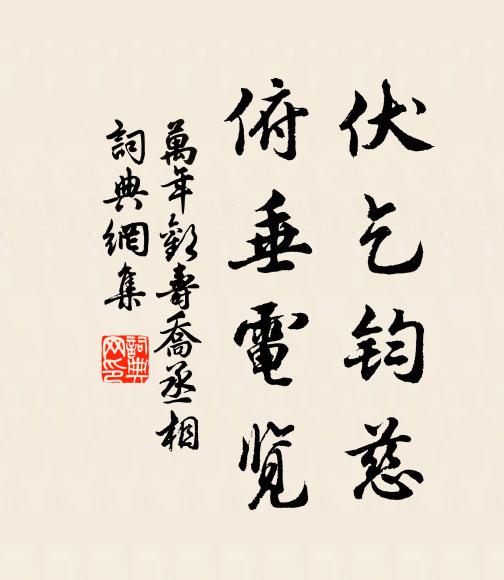 伏乞鈞慈
俯垂電覽
萬年歡壽喬丞相
詞典網集
詞典網印